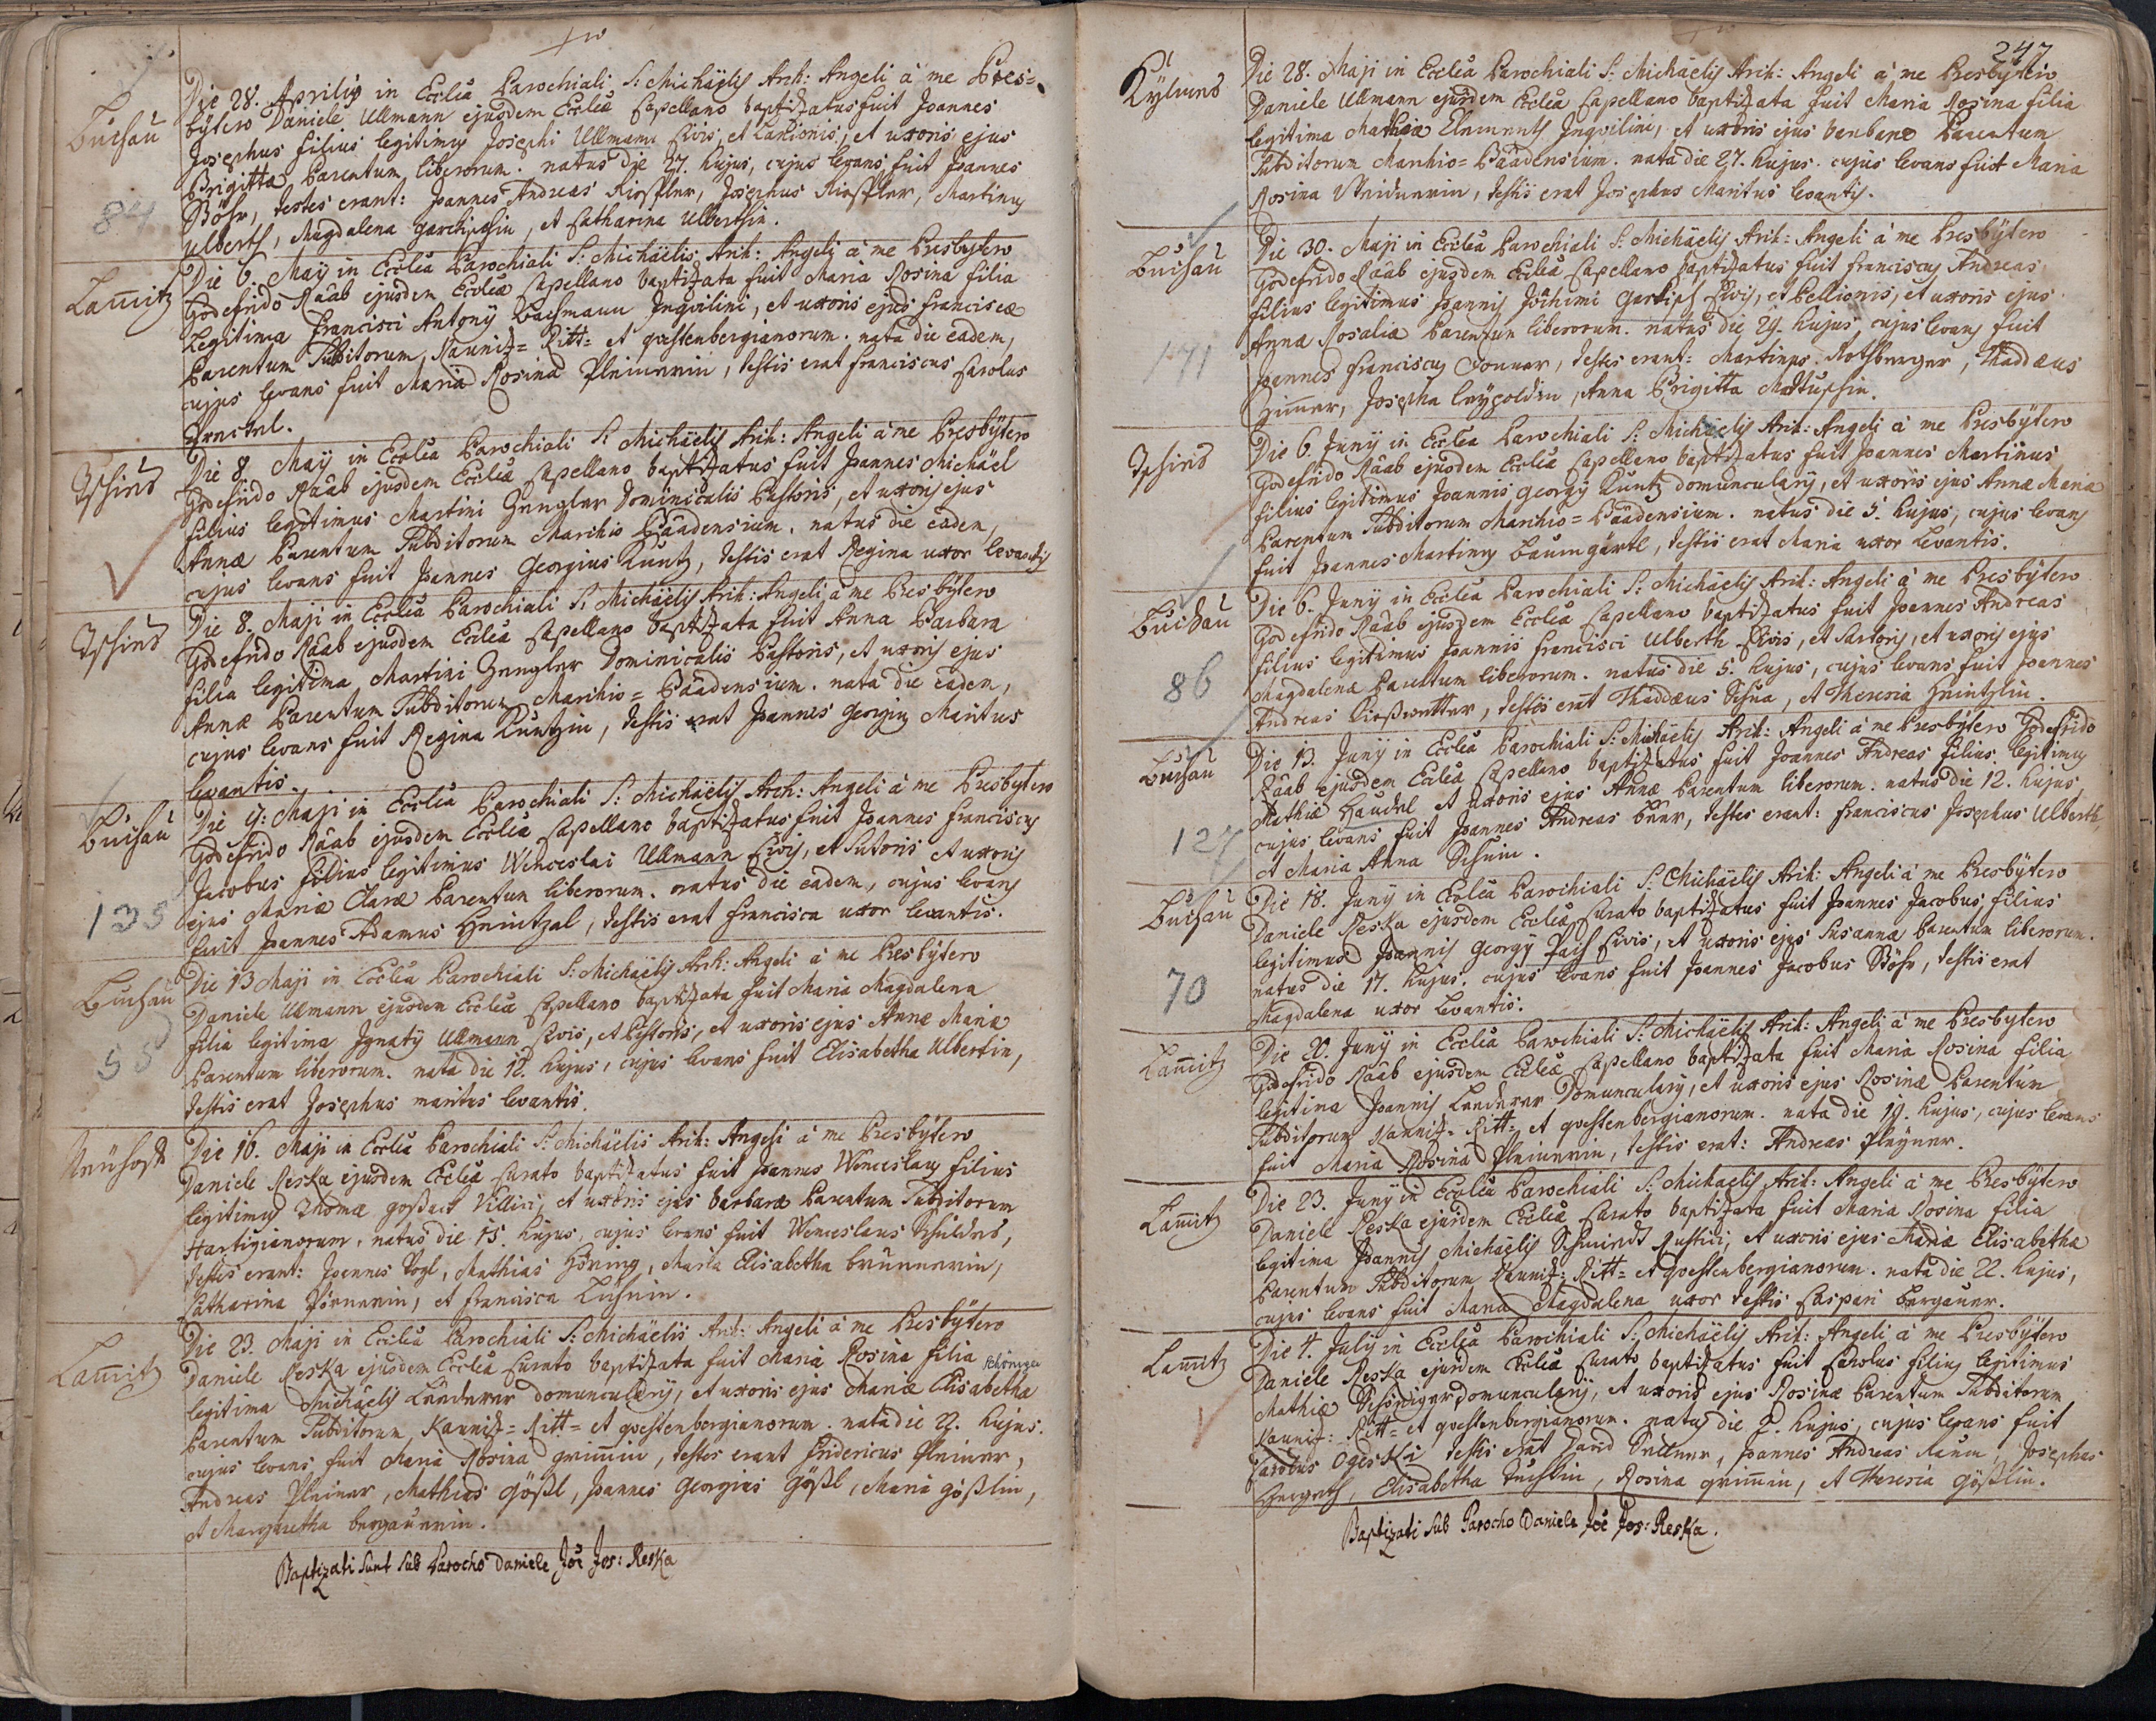 Buchau
84
Die 28. Aprilis in Ecclia Parochiali S: Michäelis Arch: Angeli à me Pres=
bytero Daniele Ullmann ejusdem Eccliæ Capellano baptizatus fuit Joannes
Josephus filius legitimus Josephi Ullmann Civis, et Lanionis, et uxoris ejus
Brigittæ Parentum liberorum. natus die 27. hujus, cujus levans fuit Joannes
Böhr, testes erant: Joannes Andreas Josephus Martinus
Ulberth, Magdalena et Catharina Ulberthin.
Lam̄itz
Die 6. Maÿ in Ecclia Parochiali S: Michäelis Arch: Angeli à me Presbytero
Godefrido Raab ejusdem Eccliæ Capellano baptizata fuit Maria Rosina filia
Legitima Francisci Antonÿ Bachmann Inquilini, et uxoris ejus Franciscæ
Parentum Subditorum Kaunitz= Ritt= et questenbergianorum. nata die eadem,
cujus levans fuit Maria Rosina Pleinerin, testis erat Franciscus Carolus
Tschies
Die 8. Maÿ in Ecclia Parochiali S: Michäelis Arch: Angeli à me Presbÿtero
Godefrido Raab ejusdem Eccliæ Capellano baptizatus fuit Joannes Michäel
filius legitimus Martini Zengler Dominicalis Pastoris, et uxoris ejus
Annæ Parentum Subditorum Marchio Baadensium. natus die eadem,
cujus levans fuit Joannes Georgius Kuntz, testis erat Regina uxor levantis
Tschies
Die 8. Maji in Ecclia Parochiali S: Michäelis Arch: Angeli à me Presbÿtero
Godefrido Raab ejusdem Eccliæ Capellano baptizata fuit Anna Barbara
filia legitima Martini Zengler Dominicalis Pastoris, et uxoris ejus
Annæ Parentum Subditorum Marchio= Baadensium. nata die eadem,
cujus levans fuit Regina Kuntzin, testis erat Joannes Georgius Maritus
levantis.
Buchau
135
Die 9: Maji in Ecclia Parochiali S: Michäelis Arch: Angeli à me Presbytero
Godefrido Raab ejusdem Eccliæ Capellano baptizatus fuit Joannes Franciscus
Jacobus filius legitimus Wenceslai Ullmann Civis, et Sutoris et uxoris
ejus Mariæ Claræ Parentum liberorum. natus die eadem, cujus levans
fuit Joannes Adamus Heintzal, testis erat Francisca uxor levantis.
Buchau
55
Die 13 Maji in Ecclia Parochiali S: Michäelis Arch: Angeli à me Presbÿtero
Daniele Ullmann ejusdem Eccliæ Capellano baptizata fuit Maria Magdalena
filia legitima Ignatÿ Ullmann Civis, et Pistoris, et uxoris ejus Annæ Mariæ
Parentum liberorum. nata die 12. hujus, cujus levans fuit Elisabetha Ulbertin,
testis erat Josephus maritus levantis.
Neühoff
Die 16. Maji in Ecclia Parochiali S: Michäelis Arch: Angeli à me Presbÿtero
Daniele Reska ejusdem Eccliæ Curato baptizatus fuit Joannes Wenceslaus filius
legitimus Thomæ Villici, et uxoris ejus Barbaræ Parentum Subditorum
Hartigianorum, natus die 15. hujus, cujus levans fuit Wenceslaus
testes erant: Joannes Vogl, Mathias Maria Elisabetha Brunnerin,
Catharina et Francisca
Lam̄itz
Die 23. Maji in Ecclia Parochiali S: Michäelis Arch: Angeli à me Presbÿtero
Daniele Reska ejusdem Eccliæ Curato baptizata fuit Maria Rosina filia
legitima Michäelis Lenderer domuncularÿ, et uxoris ejus Mariæ Elisabethæ
Parentum Subditorum Kaunitz= Ritt= et questenbergianorum. nata die 22. hujus.
cujus levans fuit Maria Rosina grim̄in, testes erant Fridericus Pleiner,
Andreas Pleiner, Mathias Gößl, Joannes Georgius Gößl, Maria gößlin,
et Margaretha bergauerin.
Baptizati sunt sub Parocho Daniele Joē Jos: Reska
247
Die 28. Maji in Ecclia Parochiali S: Michäelis Arch: Angeli à me Presbytero
Daniele Ullmann ejusdem Eccliæ Capellano baptizata fuit Maria Rosina filia
legitima Mathiæ Inquilini, et uxoris ejus Barbaræ Parentum
Subditorum Marchio= Baadensium. nata die 27. hujus. cujus levans fuit Maria
Rosina testis erat Josephus Maritus levantis.
Buchau
171
Die 30. Maji in Ecclia Parochiali S: Michäelis Arch: Angeli à me Presbÿtero
Godefrido Raab ejusdem Eccliæ Capellano baptizatus fuit Franciscus Andreas
filius legitimus Joannis Civis, et Pellionis, et uxoris ejus
Annæ Rosaliæ Parentum liberorum. natus die 29. hujus, cujus levans fuit
Joannes Franciscus testes erant: Martinus Thaddæus
Josepha Anna Brigitta
Tschies
Die 6. Junÿ in Ecclia Parochiali S: Michäelis Arch: Angeli à me Presbÿtero
Godefrido Raab ejusdem Eccliæ Capellano baptizatus fuit Joannes Martinus
filius legitimus Joannis georgÿ Kuntz domuncularÿ, et uxoris ejus Annæ Mariæ
Parentum Subditorum Marchio= Baadensium. natus die 5. hujus, cujus levans
fuit Joannes Martinus Baumgärtl, testis erat Maria uxor Levantis.
Buchau
86
Die 6. Junÿ in Ecclia Parochiali S: Michäelis Arch: Angeli à me Presbÿtero
Godefrido Raab ejusdem Eccliæ Capellano baptizatus fuit Joannes Andreas
filius legitimus Joannis Francisci Ulberth Civis, et Sartoris, et uxoris ejus
Magdalenæ Parentum liberorum. natus die 5. hujus, cujus levans fuit Joannes
Andreas testes erāt Thaddæus et Theresia Heintzlin.
Buchau
127
Die 13. Junÿ in Ecclia Parochiali S: Michäelis Arch: Angeli à me Presbÿtero Godefrido
Raab ejusdem Eccliæ Capellano baptizatus fuit Joannes Andreas filius legitimus
Mathiæ et uxoris ejus Annæ Parentum liberorum: natus die 12. hujus
cujus levans fuit Joannes Andreas testes erant: Franciscus Josephus Ulberth,
et Maria Anna
Buchau
70
Die 18. Junÿ in Ecclia Parochiali S: Michäelis Arch: Angeli à me Presbÿtero
Daniele Reska ejusdem Eccliæ Curato baptizatus fuit Joannes Jacobus filius
legitimus Joannis Georgÿ Civis, et uxoris ejus Susannæ Parentum liberorum.
natus die 17. hujus. cujus levans fuit Joannes Jacobus Böhr, testis erat
Magdalena uxor Levantis.
Lam̄itz
Die 20. Junÿ in Ecclia Parochiali S: Michäelis Arch: Angeli à me Presbytero
Godefrido Raab ejusdem Eccliæ Capellano baptizata fuit Maria Rosina filia
legitima Joannis Lenderer Domuncularÿ, et uxoris ejus Rosinæ Parentum
Subditorum Kaunitz= Ritt= et questenbergianorum. nata die 19. hujus, cujus levans
fuit Maria Rosina Pleinerin, testis erat: Andreas Pleyner.
Lam̄itz
Die 23. Junÿ in Ecclia Parochiali S: Michaelis Arch: Angeli à me Presbÿtero
Daniele Reska ejusdem Eccliæ Curato baptizata fuit Maria Rosina filia
legitima Joannis Michäelis Schmiedt Rustici, et uxoris ejus Mariæ Elisabethæ
Parentum Subditorum Kaunitz= Ritt= et questenbergianorum. nata die 22. hujus,
cujus levans fuit Maria Magdalena uxor testis Caspari bergauer.
Lam̄itz
Die 4. Julÿ in Ecclia Parochiali S: Michäelis Arch: Angeli à me Presbÿtero
Daniele Reska ejusdem Eccliæ Curato baptizatus fuit Carolus filius legitimus
Mathiæ Schöniger domuncularÿ, et uxoris ejus Rosinæ Parentum Subditorum
Kaunitz= Ritt= et questenbergianorum. natus die 2. hujus, cujus levans fuit
Carolus Ogeski testis erāt David Joannes Andreas Josephus
Elisabetha Rosina grim̄in, et Theresia gößlin.
Baptizati sub Parocho Daniele Joē Jos: Reska.